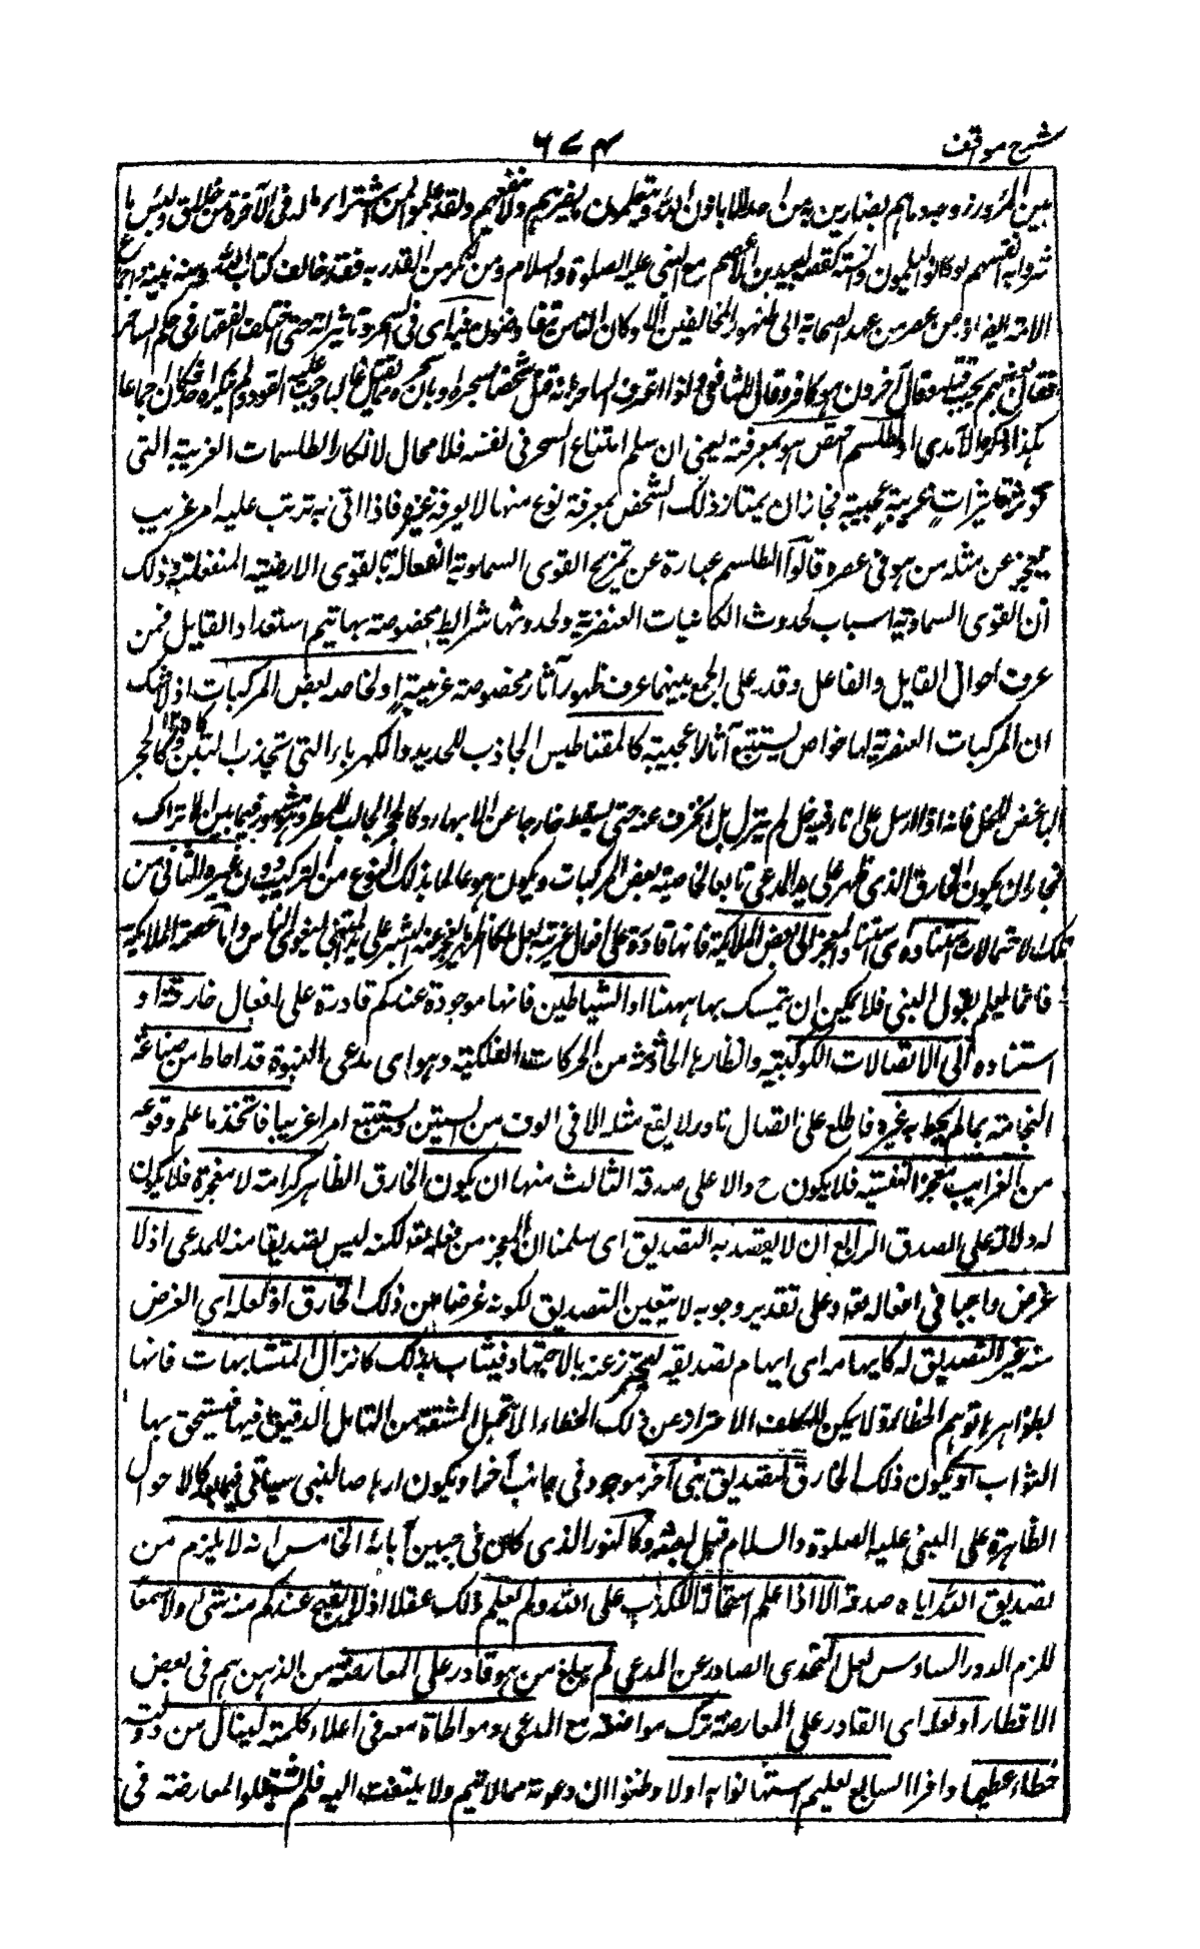 شرح مواقف
٦٧٤
بين المرء وزوجه وما هم بضارين به من احد الا باذن الله ويتعلمون ما يضرهم ولا ينفعهم ولقد علموا لمن اشتراه ماله في الآخرة من خلاق ولبئس ما
شروا به انفسهم لو كانوا يعلمون والسنة كقصة لبيد بن الاعصم مع النبي عليه الصلوة والسلام ومن انكر من القدرية فقد خالف كتاب الله وسنة نبيه واجماع
الامة ايضا اذ من عصر من عهد الصحابة الى ظهور المخالفين الا وكان الناس يتفاوضون فيه اى فى السحر وتاثيراته حتى اختلف الفقهاء فى حكم الساحر
فقال بعضهم يجب قتله وقال آخرون هو كافر وقال الشافعى اذا اعترف الساحر بانه قتل شخصا بسحره وبان سحره مما يقتل غالبا وجب عليه القود ولم ينكره احد فكان اجماعا
هكذا ذكره الآمدى او لطلسم اختص هو بمعرفته يعنى ان سلم امتناع السحر فى نفسه فلا مجال لانكار الطلسمات الغريبة التى
تاثيرات غريبة عجيبة فجاز ان يمتاز ذلك الشخص بمعرفة نوع منها لا يعرفه غيره فاذا اتى به ترتب عليه امر غريب
يعجز عن مثله من هو فى عصره قالوا الطلسم عبارة عن تمزيج القوى السماوية الفعالة بالقوى الارضية المنفعلة وذلك
ان القوى السماوية اسباب لحدوث الكائنات العنصرية ولحدوثها شرائط مخصوصة بها يتم استعداد القابل فمن
عرف احوال القابل والفاعل وقدر على الجمع بينهما عرف ظهور آثار مخصوصة غريبة او لخاصة لبعض المركبات اذ لا شك
ان المركبات العنصرية لها خواص يستتبع آثارا عجيبة كالمقناطيس الجاذب للحديد والكهرباء التى تجذب التبن وكالحجر
الباغض للخل فانه اذا ارسل على اناء فيه خل لم ينزل بل انحرف عنه حتى يسقط خارجا عن الاناء وكالحجر الجالب للمطر وهو مشهور فيما بين الاتراك
فجاز ان يكون الخارق الذى ظهر على يد المدعى تابعا لخاصية بعض المركبات ويكون هو عالما بذلك النوع من التركيب دون غيره الثانى من
تلك الاحتمالات استناده اى استناد المعجز الى بعض الملائكة فانها قادرة على افعال غريبة لعل ملكا اظهر ما يعجز عنه البشر على يد المتنبى ليغوى الناس واما عصمة الملائكة
فانما يعلم بقول النبى فلا يمكن ان يتمسك بها ههنا او الشياطين فانها موجودة عندكم قادرة على افعال خارقة او
استناده الى الاتصالات الكوكبية وانظارها الحادثة من الحركات الفلكية وهو اى مدعى النبوة قد احاط من صناعة
النجامة بما لم يحط به غيره فاطلع على اتصال نادر لا يقع مثله الا فى الوف من السنين ويستتبع امرا غريبا فاتخذ ما علم وقوعه
من الغرايب معجزا لنفسه فلا يكون ح دالا على صدقه الثالث منها ان يكون الخارق الظاهر كرامة لا معجزة فلا يكون
له دلالة على الصدق الرابع ان لا يقصد به التصديق اى سلمنا ان المعجز من فعله تعالى لكنه ليس تصديقا منه للمدعى اذ لا
غرض واجبا فى افعاله تعالى وعلى تقدير وجوبه لا يتعين التصديق لكونه غرضا من ذلك الخارق او لعله اى الغرض
منه غير التصديق له كايهامه اى ايهام تصديقه ليحترز عنه بالاجتهاد فيثاب بذلك كانزال المتشابهات فانها
بظواهرها توهم الخطاء ولا يمكن للمكلف الاحتراز عن ذلك الخطاء الا بتحمل المشقة من التامل الدقيق فيها فيستحق بها
الثواب او يكون ذلك الخارق لتصديق نبى آخر موجود فى جانب آخر او يكون ارهاصا لنبى سياتى فيما بعد كالاحوال
الظاهرة على النبى عليه الصلوة والسلام قبل بعثته وكالنور الذى كان فى جبين آبائه الخامس انه لا يلزم من
تصديق الله اياه صدقه الا اذا علم استحالة الكذب على الله ولم يعلم ذلك عقلا اذ لا يقبح عندكم منه شئ ولا سمعا
للزم الدور السادس لعل التحدى الصادر عن المدعى لم يبلغ من هو قادر على المعارضة من الذين هم فى بعض
الاقطار او لعله اى القادر على المعارضة ترك مواضعة مع المدعى ومواطاة معه فى اعلاء كلمته لينال من دولته
حظاء عظيما وافرا السابع لعلهم استهانوا به اولا وظنوا ان دعوته مما لا يتم ولا يلتفت اليه فلم يشتغلوا بمعارضته فى